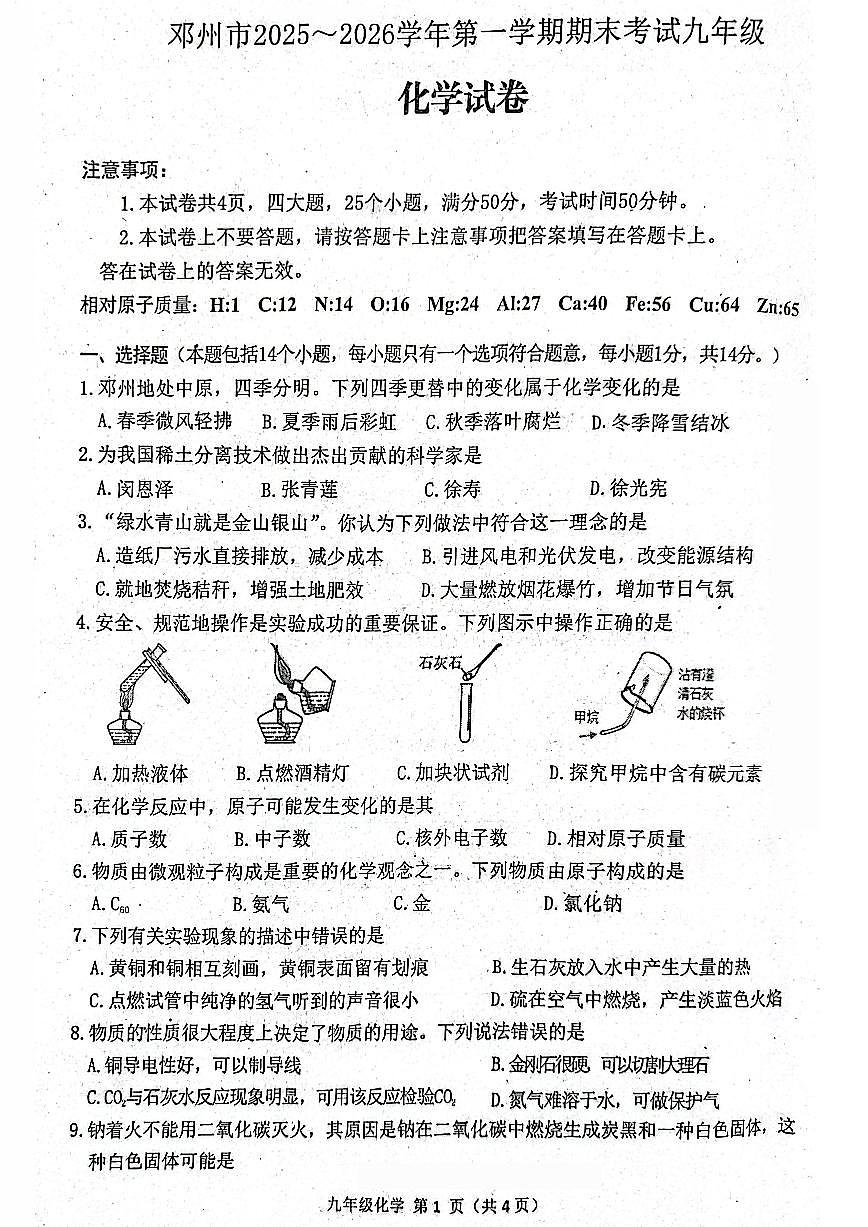 邓州市2025～2026学年第一学期期末考试九年级
化学试卷
注意事项：
1.本试卷共4页，四大题，25个小题，满分50分，考试时间50分钟。
2.本试卷上不要答题，请按答题卡上注意事项把答案填写在答题卡上。
答在试卷上的答案无效。
相对原子质量：H:1 C:12 N:14 O:16 Mg:24 Al:27 Ca:40 Fe:56 Cu:64 Zn:65
一、选择题（本题包括14个小题，每小题只有一个选项符合题意，每小题1分，共14分。）
1.邓州地处中原，四季分明。下列四季更替中的变化属于化学变化的是
A.春季微风轻拂 B.夏季雨后彩虹 C.秋季落叶腐烂 D.冬季降雪结冰
2.为我国稀土分离技术做出杰出贡献的科学家是
A.闵恩泽 B.张青莲 C.徐寿 D.徐光宪
3.“绿水青山就是金山银山”。你认为下列做法中符合这一理念的是
A.造纸厂污水直接排放，减少成本 B.引进风电和光伏发电，改变能源结构
C.就地焚烧秸秆，增强土地肥效 D.大量燃放烟花爆竹，增加节日气氛
4.安全、规范地操作是实验成功的重要保证。下列图示中操作正确的是
石灰石
甲烷
沾有澄
清石灰
水的烧杯
A.加热液体 B.点燃酒精灯 C.加块状试剂 D.探究甲烷中含有碳元素
5.在化学反应中，原子可能发生变化的是其
A.质子数 B.中子数 C.核外电子数 D.相对原子质量
6.物质由微观粒子构成是重要的化学观念之一。下列物质由原子构成的是
A.C₆₀ B.氨气 C.金 D.氯化钠
7.下列有关实验现象的描述中错误的是
A.黄铜和铜相互刻画，黄铜表面留有划痕 B.生石灰放入水中产生大量的热
C.点燃试管中纯净的氢气听到的声音很小 D.硫在空气中燃烧，产生淡蓝色火焰
8.物质的性质很大程度上决定了物质的用途。下列说法错误的是
A.铜导电性好，可以制导线 B.金刚石很硬，可以切割大理石
C.CO₂与石灰水反应现象明显，可用该反应检验CO₂ D.氮气难溶于水，可做保护气
9.钠着火不能用二氧化碳灭火，其原因是钠在二氧化碳中燃烧生成炭黑和一种白色固体，这
种白色固体可能是
九年级化学 第1页（共4页）